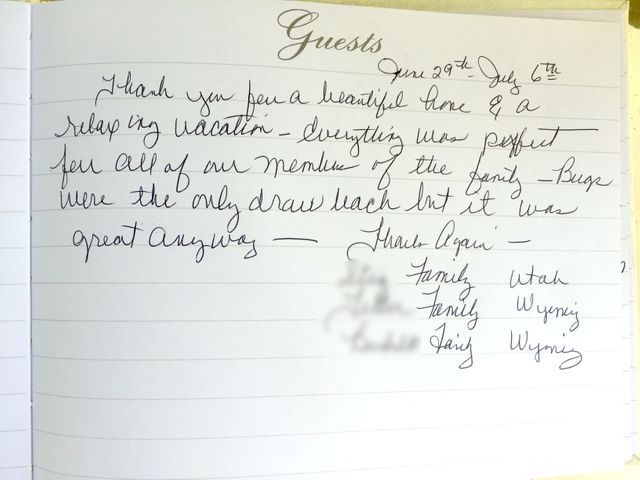 Guests
June 29th - July 6th
Thank you for a beautiful home & a
relaxing vacation - Everything was perfect
for all of our members of the family - Bugs
were the only draw back but it was
great anyway — Thanks Again -
Family Utah
Family Wyoming
Family Wyoming